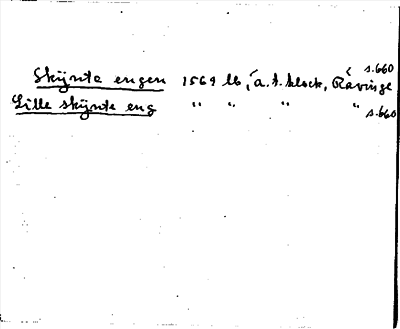 Skijnte engen 1569 lb, a. t. klock, Råvinge s. 660
Lille skijnte eng " " " " s. 660